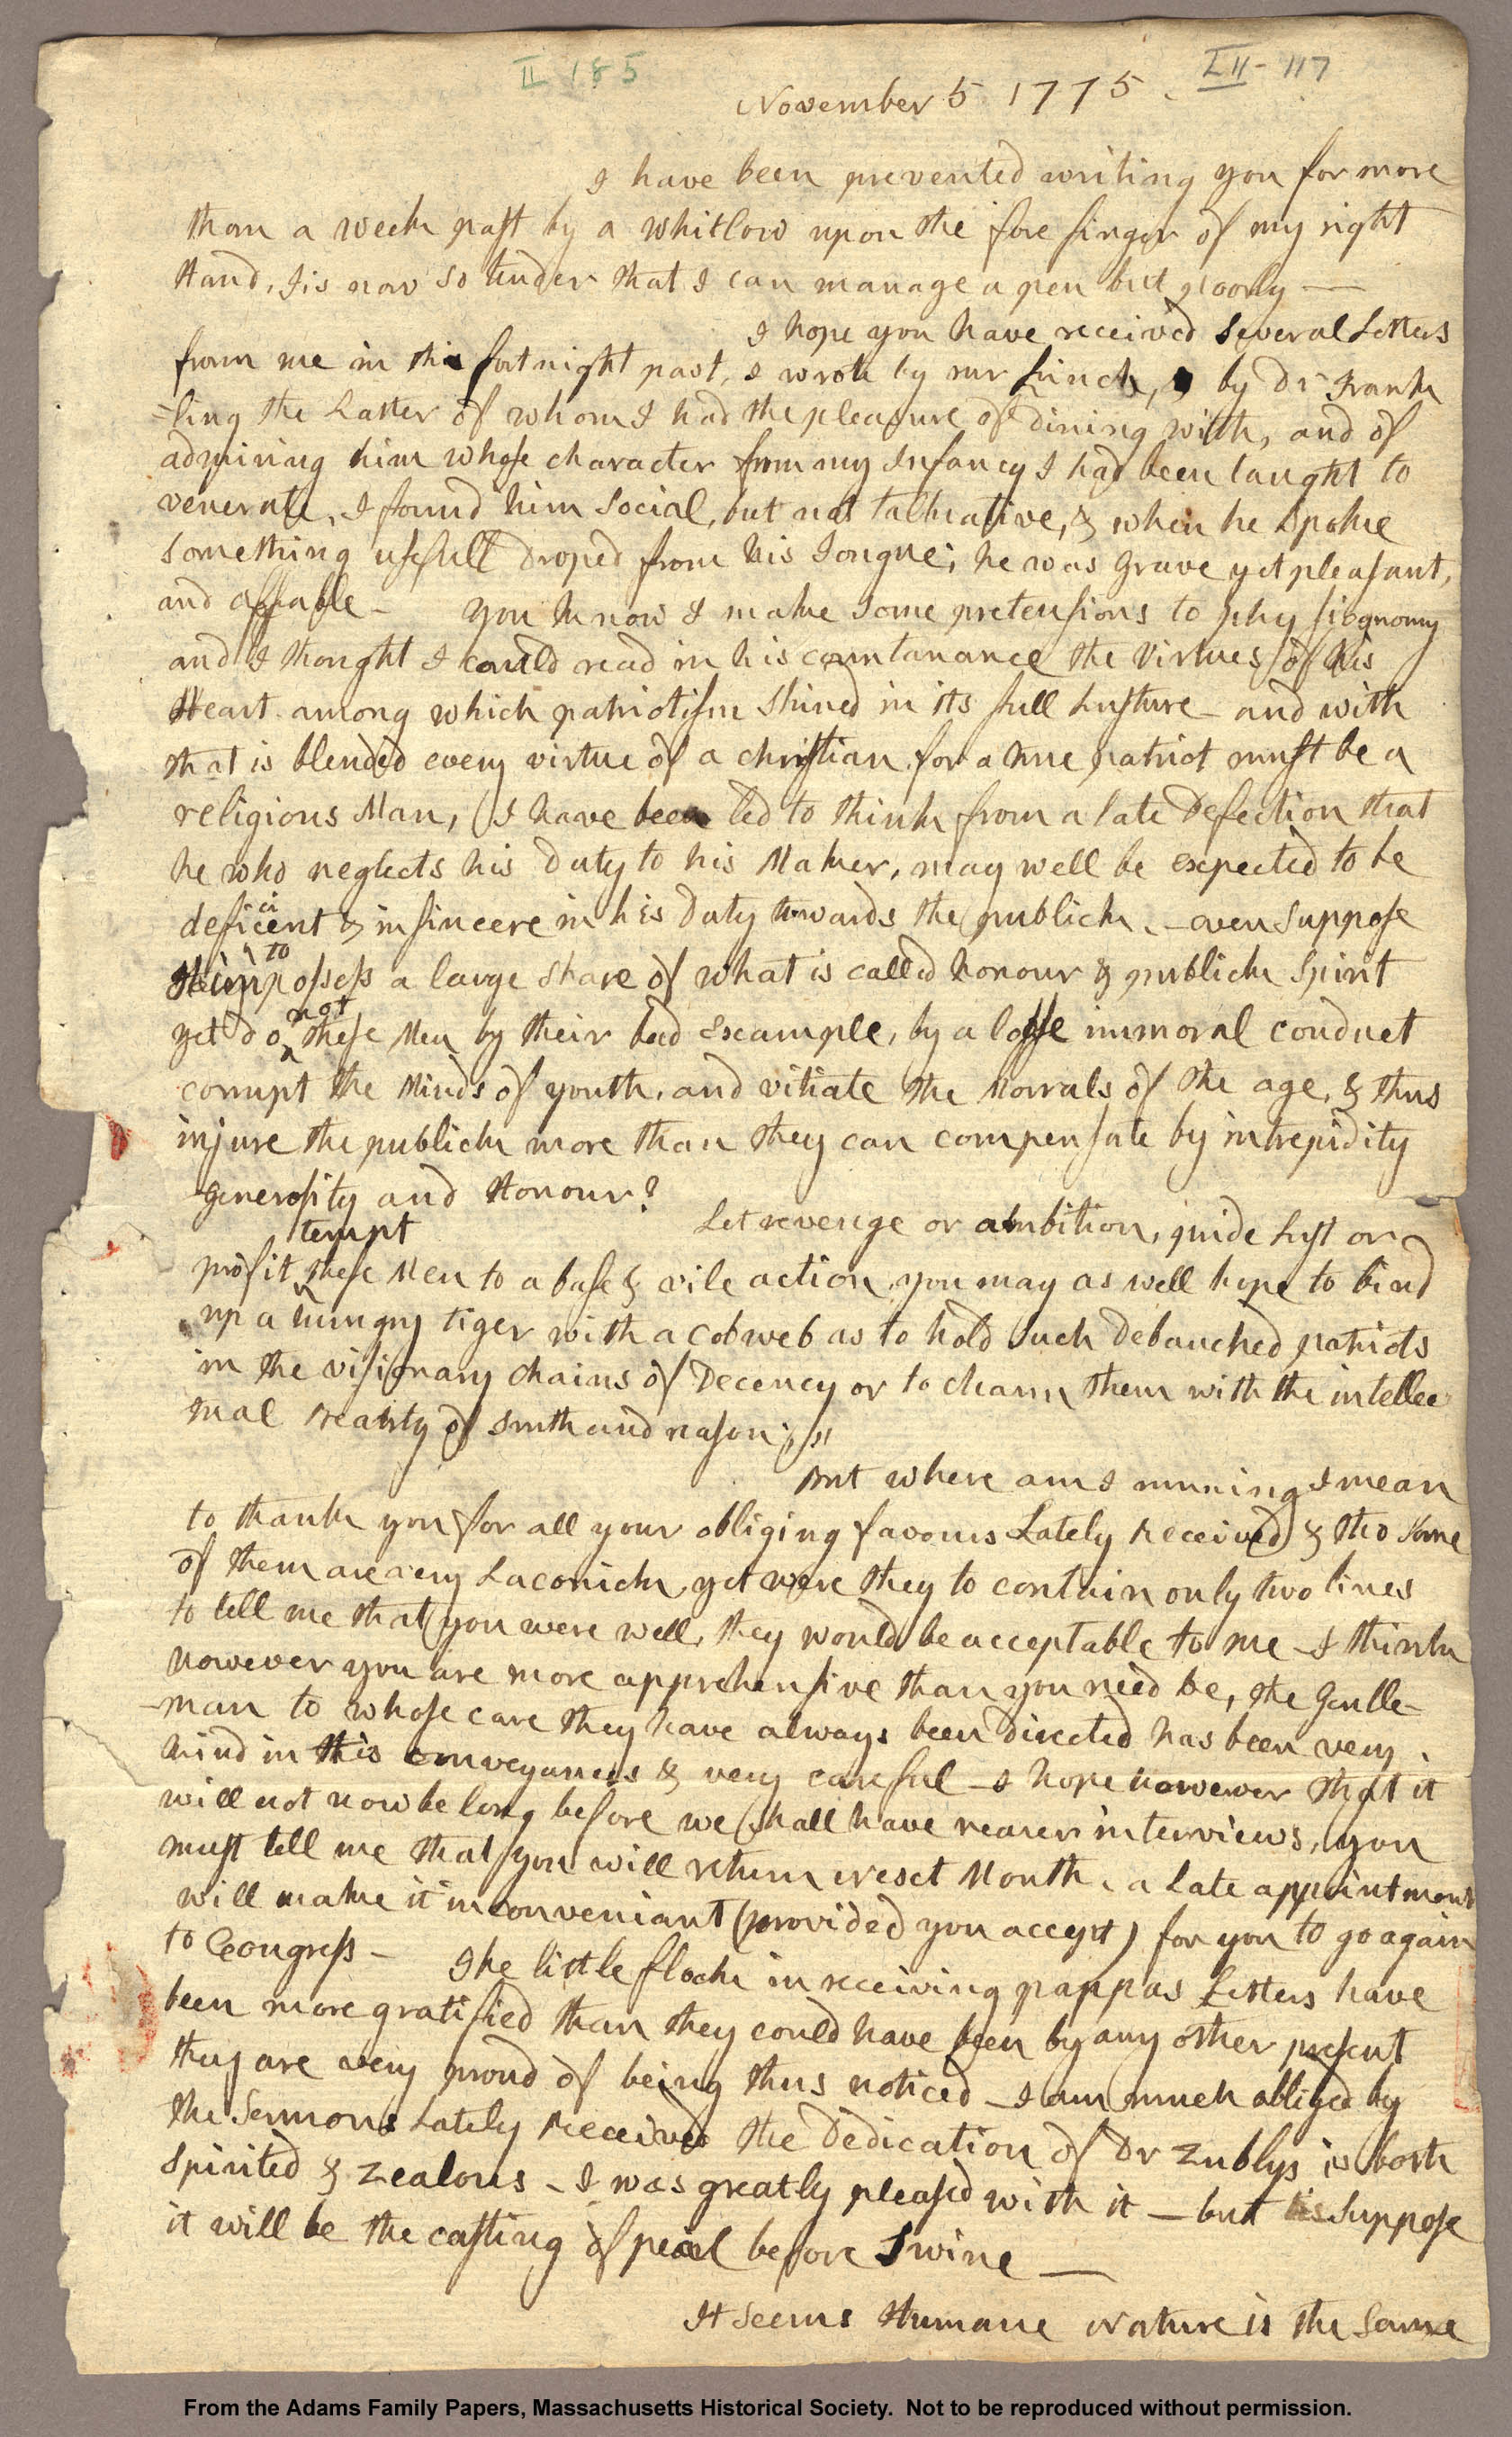 II 185
LII-117
November 5 1775.
I have been prevented writing you for more
than a week past by a whitlow upon the fore finger of my right
Hand, tis now so tender that I can manage a pen but poorly —
I hope you have received several Letters
from me in this fortnight past, I wrote by mr Linch, by Dr Frank
=ling the Latter of whom I had the pleasure of dining with, and of
admiring him whose character from my Infancy I had been taught to
venerate, I found him social, but not talkative, & when he spoke
something usefull droped from his Tongue; he was grave yet pleasant,
and affable — You know I make some pretensions to physiognomy
and I thought I could read in his countanance the Virtues of his
Heart. among which patriotism shined in its full Lusture — and with
that is blended every virtue of a christian. for a true patriot must be a
religious Man, I have been led to think from a late Defection that
he who neglects his Duty to his Maker, may well be expected to be
deficient & insincere in his Duty towards the publick. — even suppose
Him to possess a large share of what is called honour & publick Spirit
yet do not these Men by their bad Example, by a loose immoral conduct
corrupt the Minds of youth, and vitiate the Morrals of the age, & thus
injure the publick more than they can compensate by intrepidity
Generosity and Honour?
Let revenge or ambition, pride Lust or
profit tempt these Men to a base & vile action, you may as well hope to bind
up a hungry tiger with a cobweb as to hold such Debauched patriots
in the visionary chains of Decency or to charm them with the intellec
tual Beauty of Truth and reason."
But where am I running I mean
to thank you for all your obliging favours Lately received & tho some
of them are very Laconick, yet were they to contain only two lines
to tell me that you were well, they would be acceptable to me — I think
however you are more apprehensive than you need be, the Gentle-
-man to whose care they have always been directed has been very
kind in his conveyances & very careful — I hope however that it
will not now be long before we shall have nearer interviews, you
must tell me that you will return next Month, a late appointment
will make it inconveniant (provided you accept) for you to go again
to Congress — The little flock in receiving pappas Letters have
been more gratified than they could have been by any other present
they are very proud of being thus noticed — I am much obliged by
the Sermons Lately Received the Dedication of Dr Zublys is both
spirited & Zealous — I was greatly pleased with it — but suppose
it will be the casting of pearl before Swine —
It seems Humane Nature is the same
From the Adams Family Papers, Massachusetts Historical Society. Not to be reproduced without permission.